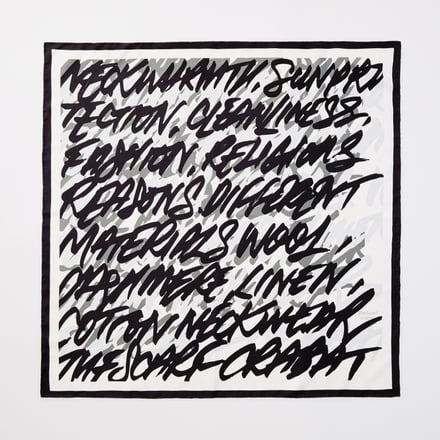 NECK WARMTH. SUN PRO
TECTION. CLEANLINESS.
FASHION. RELIGIOUS
REASONS. DIFFERENT
MATERIALS WOOL.
CASHMERE. LINEN.
COTTON. NECKWEAR
THE SCARF CRAVAT